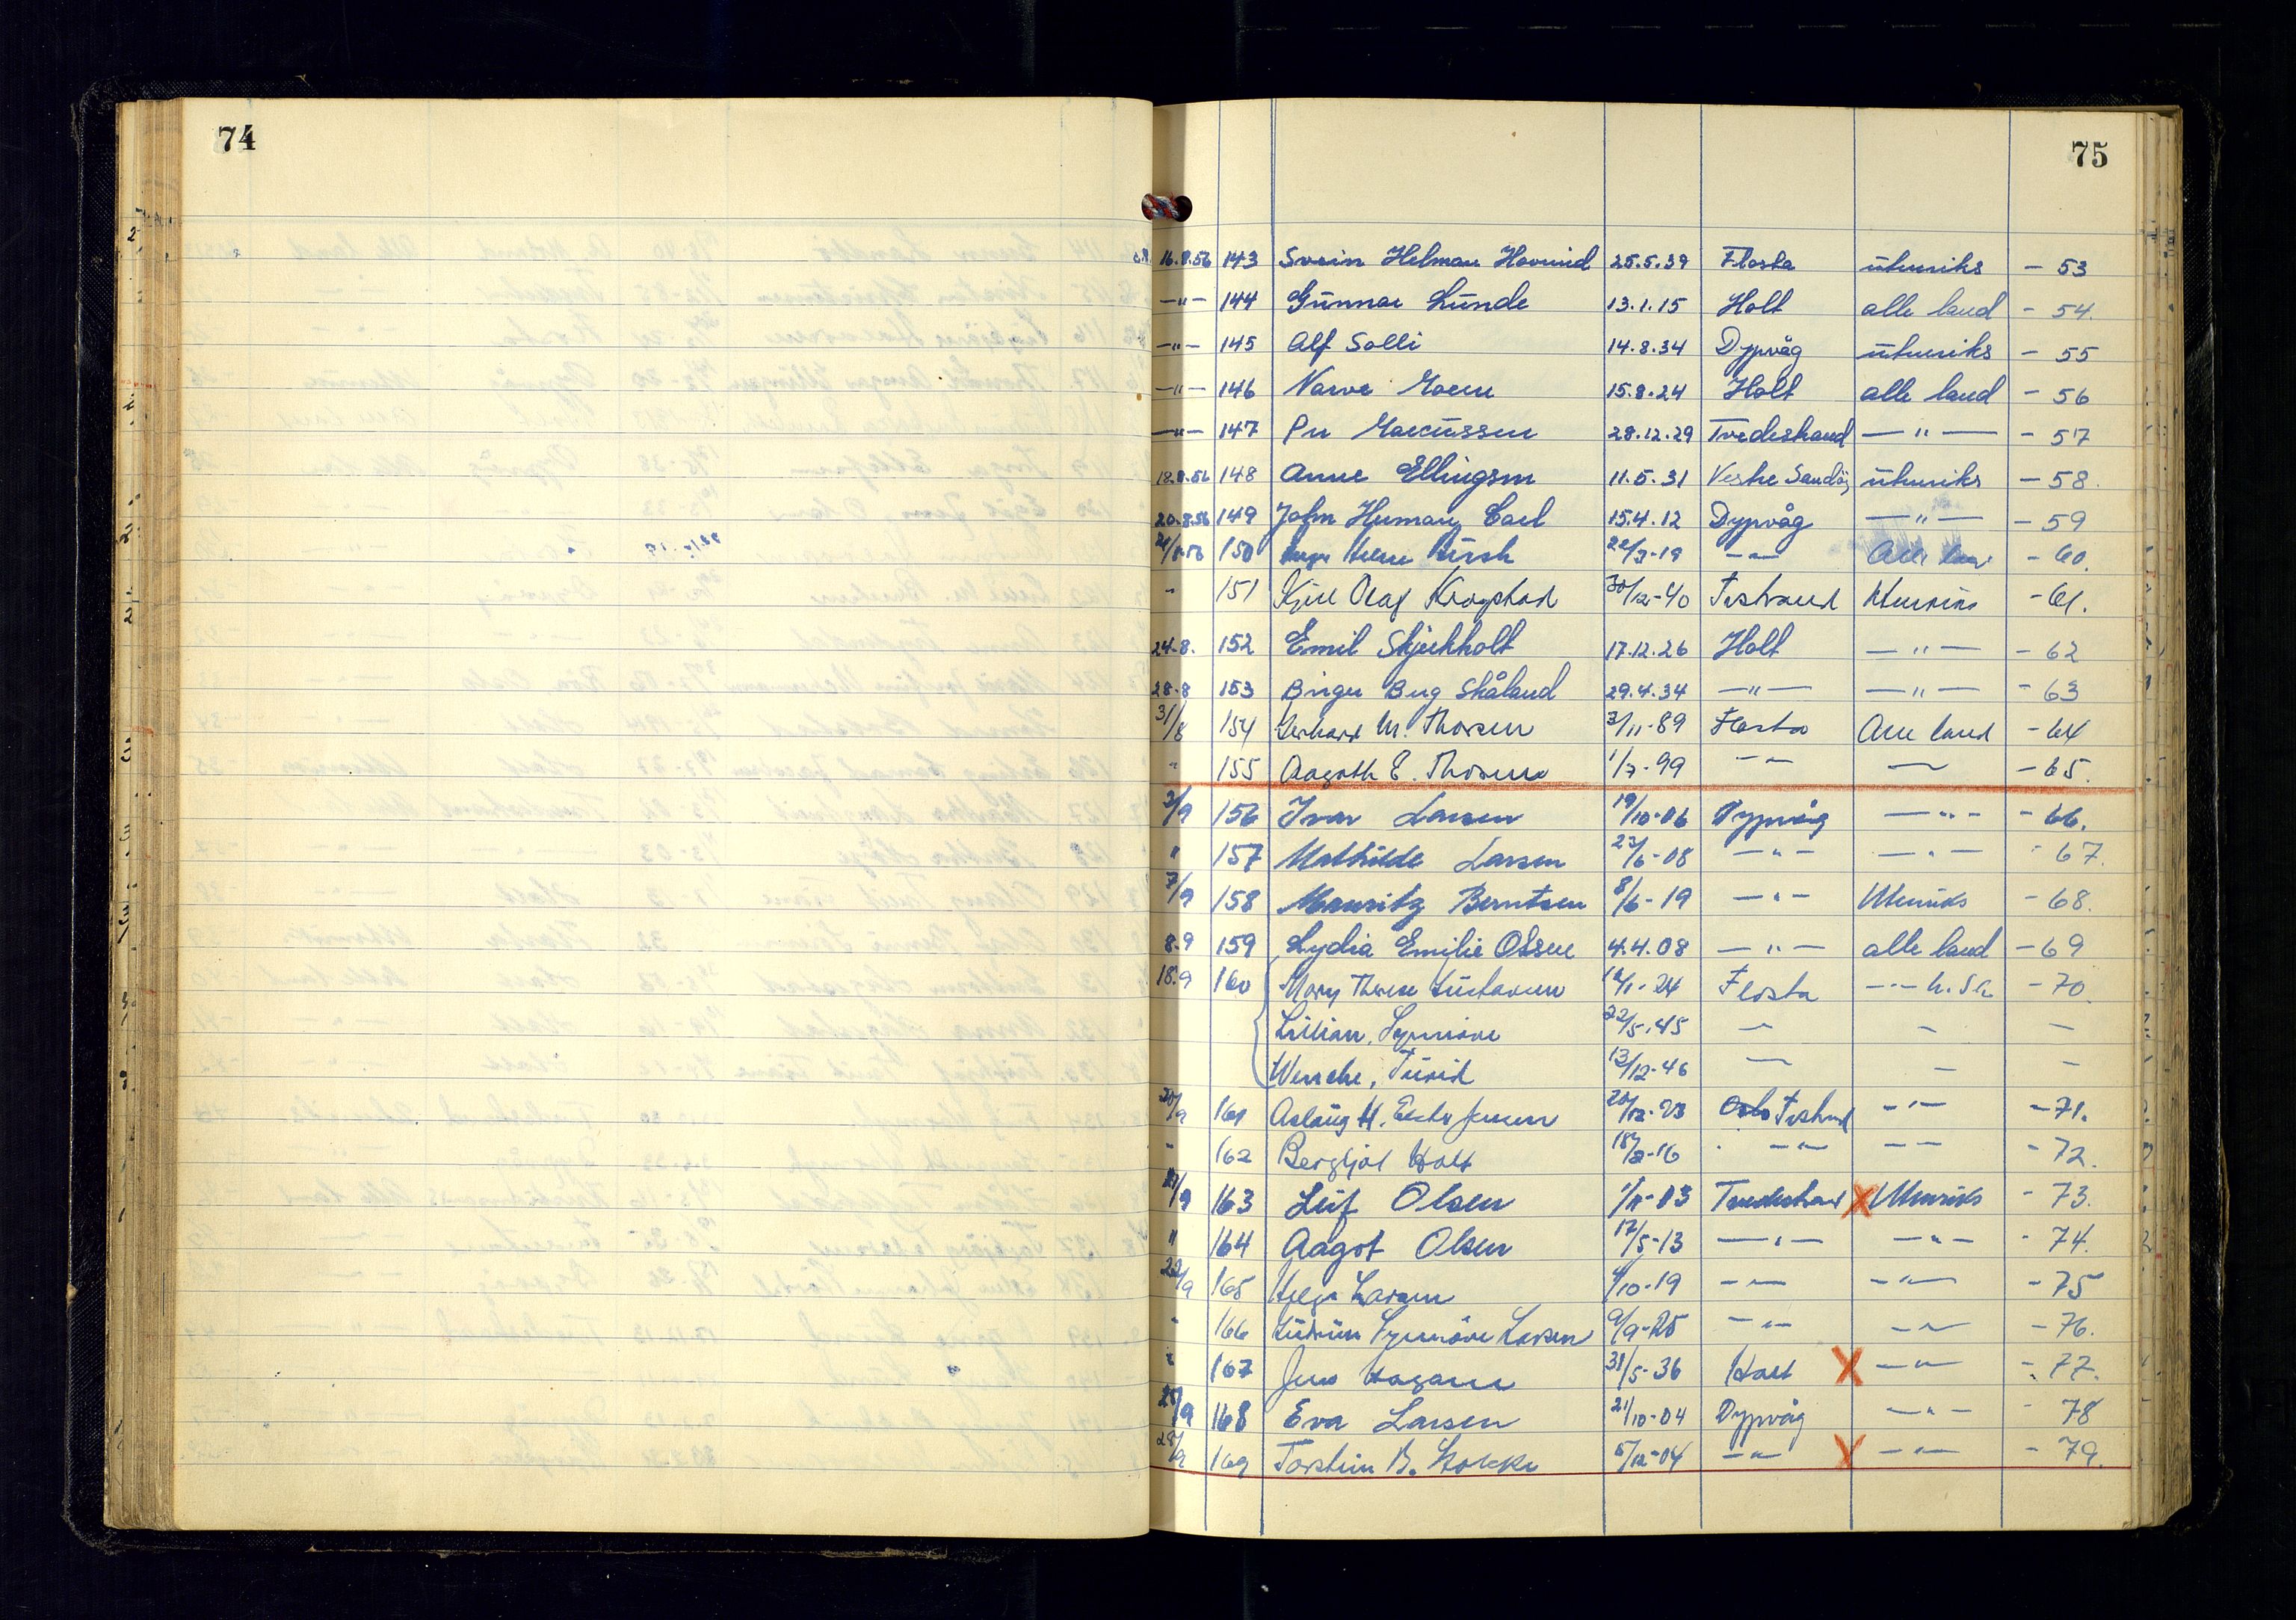 74
75
16.8.56 143 Svein Helman Hovind 25.5.39 Flosta utenriks - 53
-"- 144 Gunnar Lunde 13.1.15 Holt alle land - 54.
-"- 145 Alf Solli 14.8.34 Dypvåg utenriks - 55
-"- 146 Narve Moen 15.8.24 Holt alle land - 56
-"- 147 Per Marcussen 28.12.29 Tvedestrand -"- - 57
18.8.56 148 Anne Ellingsen 11.5.31 Vestre Sandøy utenriks - 58.
20.8.56 149 John Herman Carl 15.4.12 Dypvåg -"- - 59
150 22/3-19 -"- Alle land - 60.
" 151 Kjell Olaf Krogstad 30/12-40 T.strand Utenriks - 61.
24.8. 152 Emil Skjekholt 17.12.26 Holt -"- - 62
28.8 153 Birger Berg Skåland 29.4.34 -"- -"- - 63
31/8 154 Gerhard M. Thorsen 3/11-89 Flosta Alle land - 64
" 155 Aagoth E. Thorsen 1/7-99 -"- - 65.
3/9 156 Ivar Larsen 19/10-06 Dypvåg -"- - 66.
" 157 Mathilde Larsen 23/6-08 -"- -"- - 67.
7/9 158 Mauritz Berntsen 8/6-19 -"- Utenriks - 68.
8.9 159 Lydia Emilie Olsen 4.4.08 -"- alle land - 69
18.9 160 Mary Therese Gustavsen 1-24 Flosta - 70
Lillian, Synnøve 22/5-45 - - -
Wenche, Turid 13/12-46 - - -
20/9 161 Aslaug H. Jensen 20/12-23 Oslo T.strand -"- - 71.
" 162 Bergljot Holt 18/2-16 -"- -"- - 72.
21/9 163 Leif Olsen 1/11-03 Tvedestrand X Utenriks - 73.
" 164 Aagot Olsen 17/5-13 -"- -"- - 74.
22/9 165 Helge Larsen 4/10-19 -"- -"- - 75
" 166 Gudrun Synnøve Larsen 9/9-25 -"- -"- - 76.
" 167 Jens Hagane 31/5-36 Holt X -"- - 77.
25/9 168 Eva Larsen 21/10-04 Dypvåg -"- - 78
28/9 169 Torstein B. Stokke 5/12-04 -"- X -"- - 79.